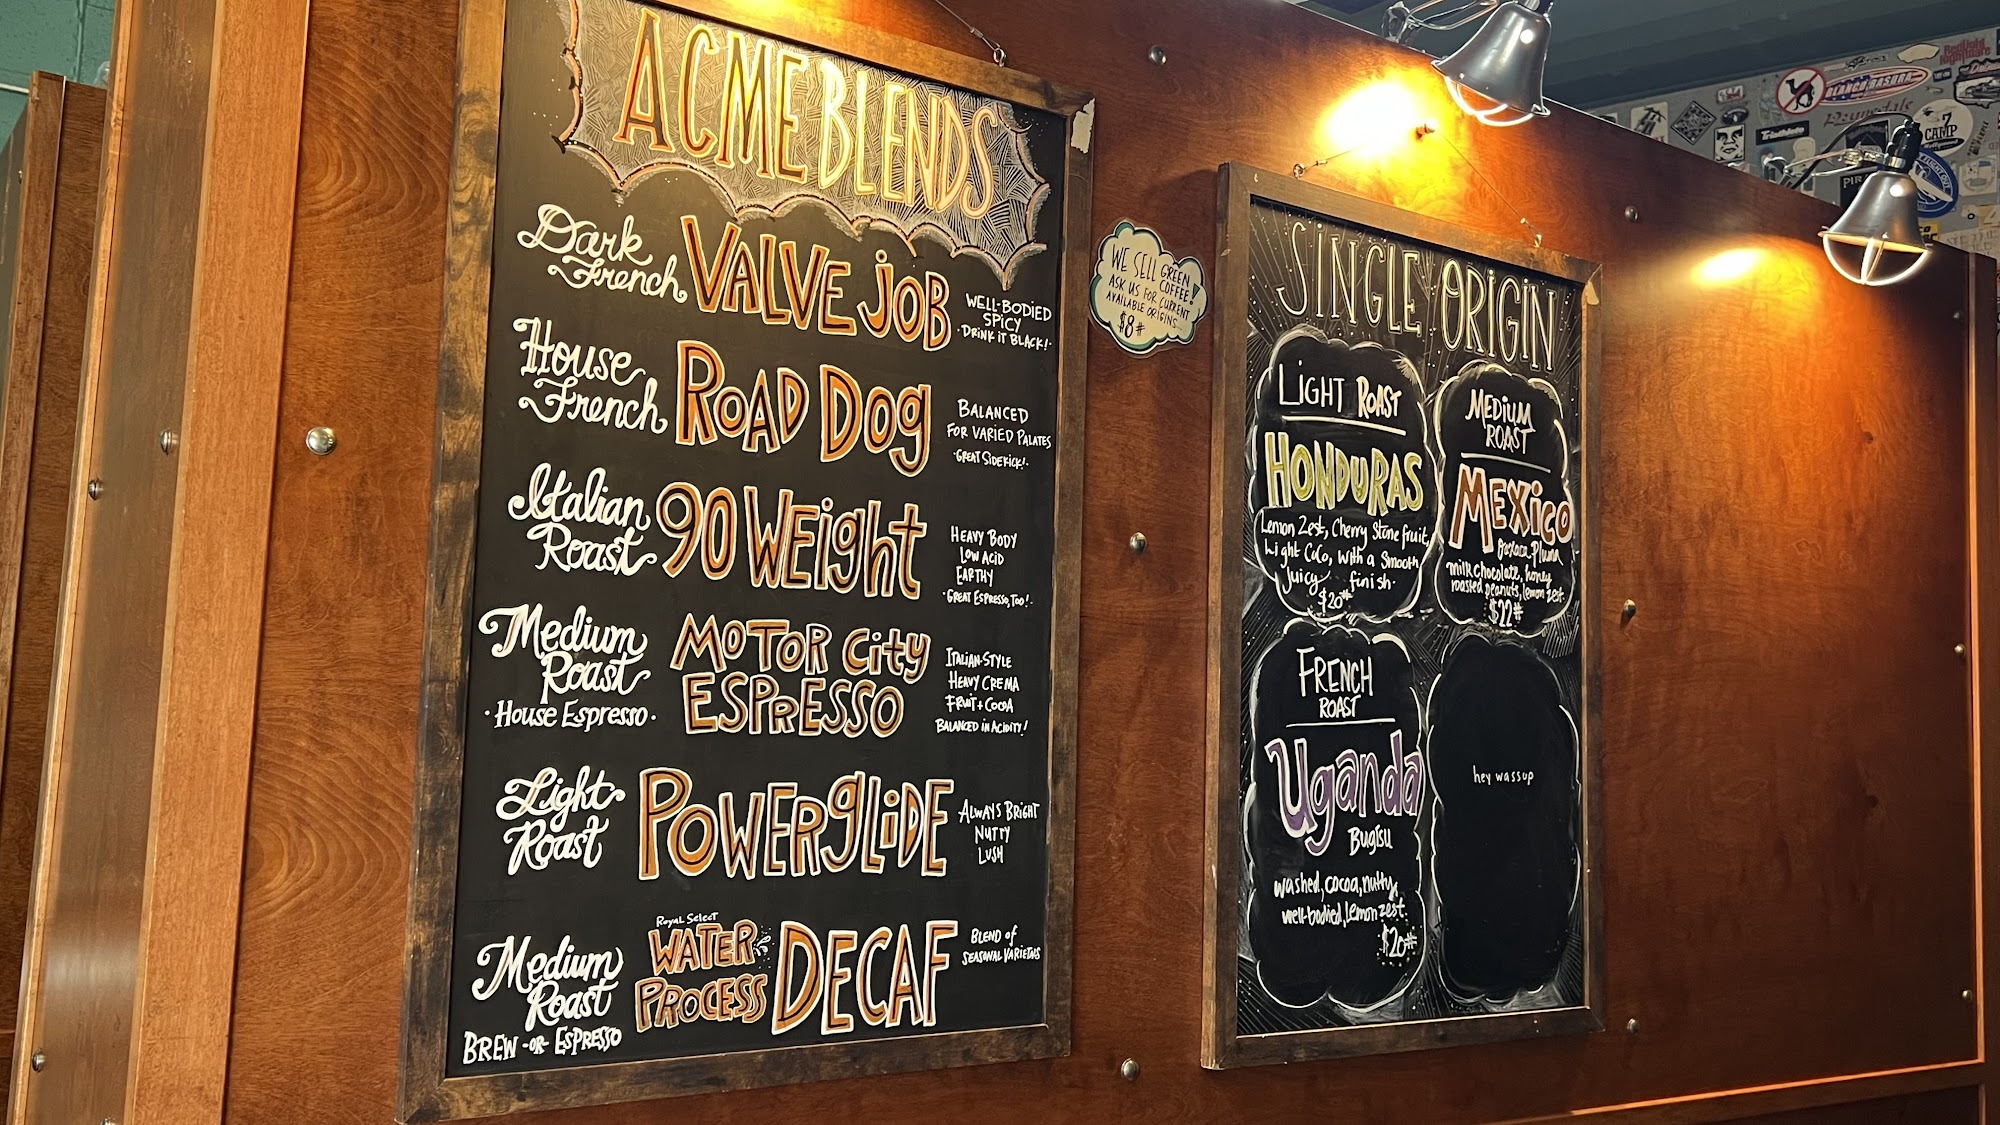 ACME BLENDS
Dark
French
VALVE JOB
WELL-BODIED
SPICY
·DRINK IT BLACK!·
House
French
ROAD DOG
BALANCED
FOR VARIED PALATES
·GREAT SIDEKICK!·
Italian
Roast
90 WEIGHT
HEAVY BODY
LOW ACID
EARTHY
·GREAT ESPRESSO, TOO!·
Medium
Roast
·House Espresso·
MOTOR CITY
ESPRESSO
ITALIAN-STYLE
HEAVY CREMA
FRUIT + COCOA
BALANCED IN ACIDITY!
Light
Roast
POWERGLIDE
ALWAYS BRIGHT
NUTTY
LUSH
Medium
Roast
BREW -OR- ESPRESSO
Royal Select
WATER
PROCESS
DECAF
BLEND of
SEASONAL VARIETALS
WE SELL GREEN
COFFEE!
ASK US FOR CURRENT
AVAILABLE ORIGINS
$8#
SINGLE ORIGIN
LIGHT ROAST
HONDURAS
Lemon Zest, Cherry Stone fruit,
Light CoCo, with a Smooth
Juicy finish.
$20#
MEDIUM
ROAST
MEXICO
Oaxaca Pluma
milk chocolate, honey
roasted peanuts, lemon zest.
$22#
FRENCH
ROAST
Uganda
Bugisu
washed, cocoa, nutty,
well-bodied, lemon zest.
$20#
hey wassup
BLANCO BASURA
7
CAMP
PIR